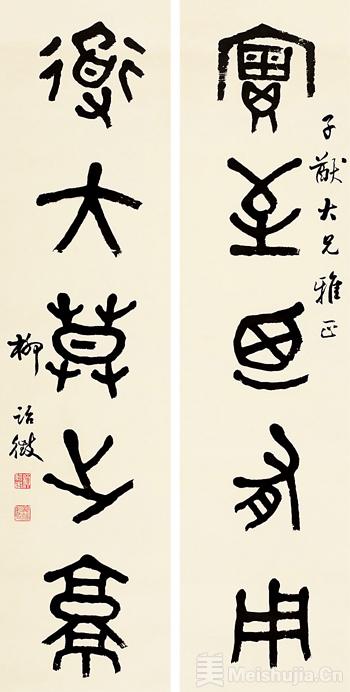 子猷大兄雅正
實至自有用
道大莫之京
柳詒徵
美 Meishujia.Cn